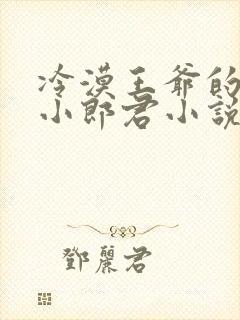 冷漠王爺的
小郎君小說
鄧麗君